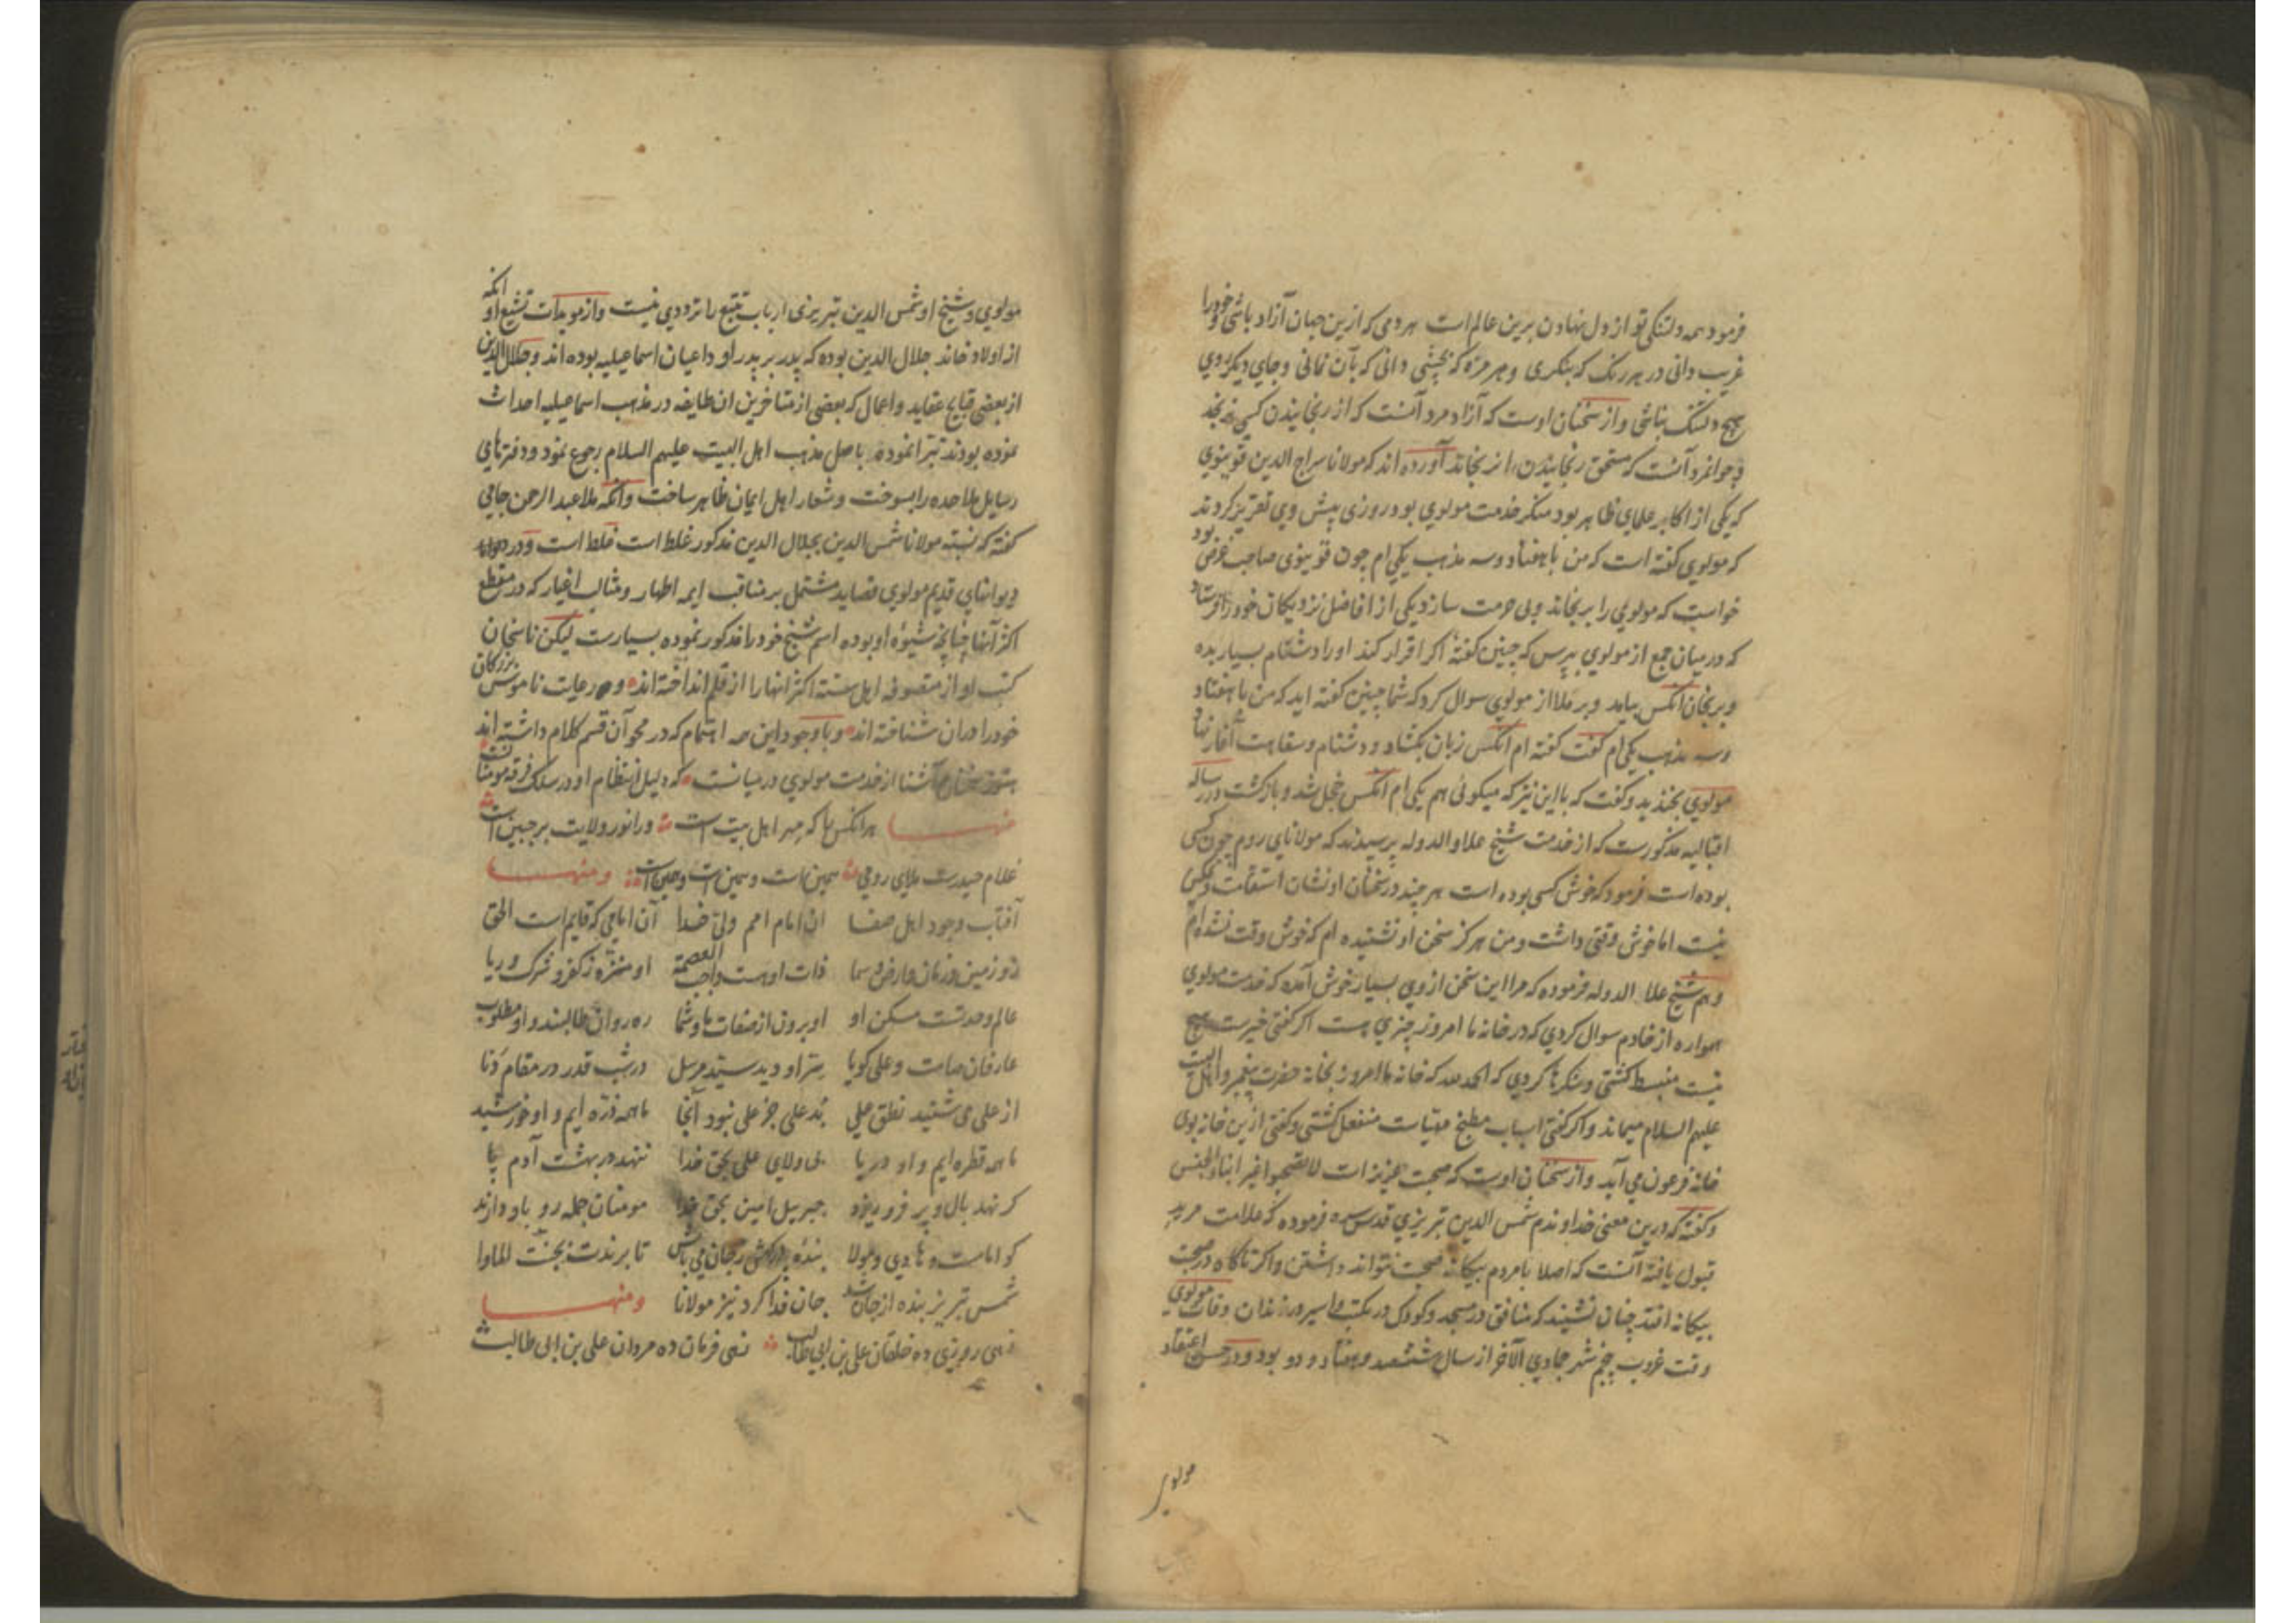 فرمود همه دلتنگی تو از دل نهادن برین عالم است هر دمی که ازین جهان آزاد باشی و خود را
غریب دانی در هر رنگ که بنکری و هر مزه که بچشی دانی که بآن نمانی و جای دیکر روی
هیچ دلتنک نباشی و از سخنان اوست که آزاد مرد آنست که از رنجانیدن کسی نرنجد
و جوانمرد آنست که مستحق رنجانیدن را نرنجاند آورده اند که مولانا سراج الدین قونیوی
که یکی از اکابر علمای ظاهر بود منکر خدمت مولوی بود روزی پیش وی تقریر کردند
که مولوی کفته است که من با هفتاد و سه مذهب یکی ام چون قونیوی صاحب غرض بود
خواست که مولوی را برنجاند و بی حرمت سازد یکی از افاضل نزدیکان خود را فرستاد
که در میان جمع از مولوی بپرس که چنین کفتهٔ اکر اقرار کند او را دشنام بسیار بده
و برنجان انکس بیامد و بر ملا از مولوی سوال کرد که شما چنین کفته اید که من با هفتاد
و سه مذهب یکی ام کفت کفته ام انکس زبان بکشاد و دشنام و سفاهت آغاز نهاد
مولوی بخندید و کفت که با این نیز که میکوئی هم یکی ام انکس خجل شد و بازکشت در رساله
اقبالیه مذکورست که از خدمت شیخ علاو الدوله پرسیدند که مولانای روم چون کسی
بوده است فرمود که خوش کسی بوده است هر چند در سخنان او نشان استقامت و تمکین
نیست اما خوش وقتی داشت و من هرکز سخن او نشنیده ام که خوش وقت نشده ام
و هم شیخ علا الدوله فرموده که مرا این سخن از وی بسیار خوش آمده که خدمت مولوی
همواره از خادم سوال کردی که در خانه ما امروز چیزی هست اکر کفتی خیرست هیچ
نیست منبسط کشتی و شکرها کردی که الحمد لله که خانه ما امروز بخانه حضرت پیغمبر و اهل البیت
علیهم السلام میماند و اکر کفتی اسباب مطبخ مهیاست منفعل کشتی و کفتی ازین خانه بوی
خانه فرعون می آید و از سخنان اوست که صحبت عزیز است لا تصحبوا غیر ابناء الجنس
و کفته که درین معنی خداوندم شمس الدین تبریزی قدس سره فرموده که علامت مرید
قبول یافته آنست که اصلا با مردم بیکانه صحبت نتواند داشتن و اکر ناکاه در صحبت
بیکانه افتد چنان نشیند که منافق در مسجد و کودک در مکتب و اسیر در زندان وفات مولوی
وقت غروب پنجم شهر جمادی الآخر از سال ششصد و هفتاد و دو بود و در حسن اعتقاد
مولوی
مولوی و شیخ او شمس الدین تبریزی ارباب تتبع را ترددی نیست و از مویدات تشیع او انکه
از اولاد خاند جلال الدین بوده که پدر بر پدر او داعیان اسماعیلیه بوده اند و جلال الدین
از بعضی قبایح عقاید و اعمال که بعضی از متاخرین ان طایفه در مذهب اسماعیلیه احداث
نموده بودند تبرا نموده باصل مذهب اهل البیت علیهم السلام رجوع نمود و دفترهای
رسایل ملاحده را بسوخت و شعار اهل ایمان ظاهر ساخت وانکه ملا عبد الرحمن جامی
کفته که نسبته مولانا شمس الدین بجلال الدین مذکور غلط است غلط است و در
دیوانهای قدیم مولوی قصاید مشتمل بر مناقب ایمه اطهار و مثالب اغیار که در مقطع
اکثر آنها چنانچه شیوه او بوده اسم شیخ خود را مذکور نموده بسیارست لیکن ناسخان
کتب او از متصوفه اهل سنته اکثر انها را از قلم انداخته اند و رعایت ناموس بزرکان
خود را دران شناخته اند و با وجود این همه اهتمام که در محو آن قسم کلام داشته اند
هنوز سخنان آشنا از خدمت مولوی در میانست که دلیل انتظام او در سلک فرقه مومنانست
منها هر انکس را که مهر اهل بیت است ورا نور ولایت بر جبین است
غلام حیدرست ملای رومی همین است و همین است و همین است ومنها
آفتاب وجود اهل صفا ان امام امم ولی خدا آن امامی که قایم است الحق
زو زمین و زمان و ارض و سما ذات او هست واجب العصمة او منزه ز کفر و شرک و ریا
عالم وحدتست مسکن او او برون از صفات ما و شما ره روان طالبند و او مطلوب
عارفان صامت و علی کویا سر او دید سید مرسل در شب قدر در مقام دنا
از علی می شنید نطق علی بد علی جز علی نبود آنجا ما همه ذره ایم و او خورشید
ما همه قطره ایم و او دریا بی ولای علی بحق خدا ننهد در بهشت آدم پا
کر نهد بال و پر فرو ریزد جبرییل امین بحق خدا مومنان جمله رو باو دارند
کو امامست و هادی و مولا بنده ز جان می باش تا برندت بجنت الماوا
شمس تبریز بنده از جان شد جان فدا کرد نیز مولانا ومنها
زهی روزی ده خلقان علی بن ابی طالب زهی فرمان ده مردان علی بن ابی طالب